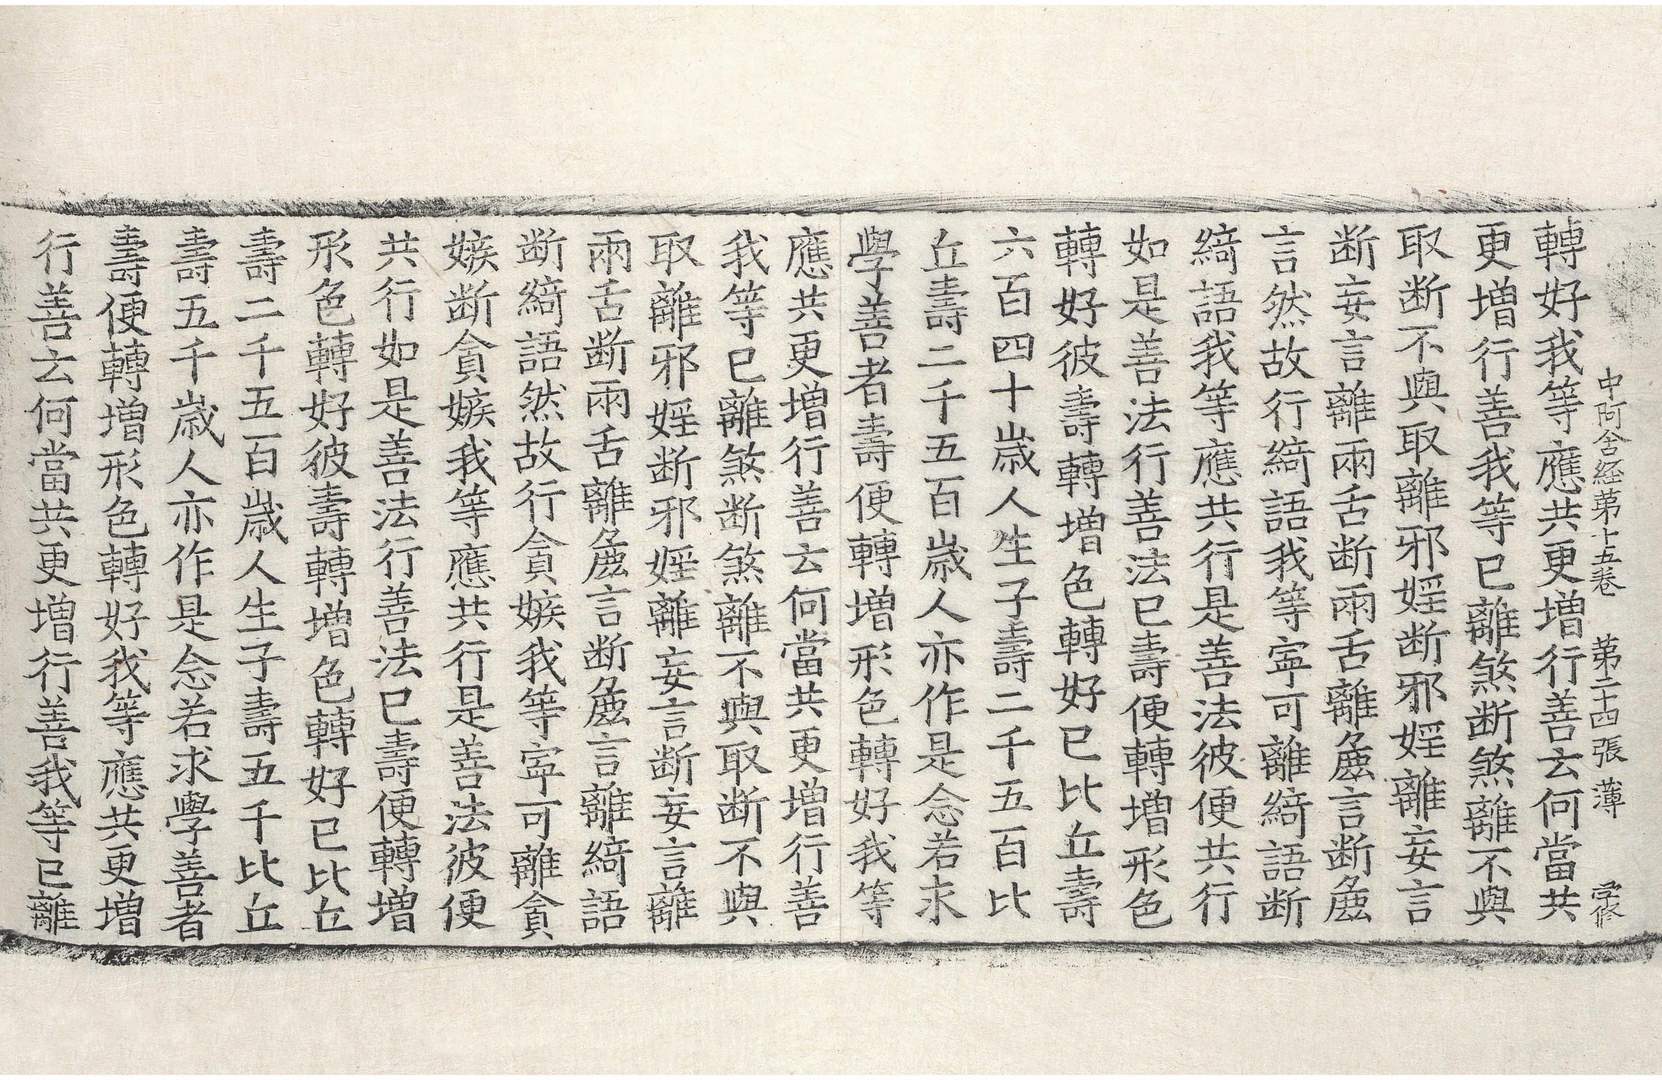 中阿含経第十五巻 第二十四張 薄 学修
轉好我等應共更增行善云何當共
更增行善我等已離煞断煞離不與
取断不與取離邪婬断邪婬離妄言
断妄言離兩舌断兩舌離麁言断麁
言然故行綺語我等寜可離綺語断
綺語我等應共行是善法彼便共行
如是善法行善法已壽便轉增形色
轉好彼壽轉增色轉好已比丘壽
六百四十歲人生子壽二千五百比
丘壽二千五百歲人亦作是念若求
學善者壽便轉增形色轉好我等
應共更增行善云何當共更增行善
我等已離煞断煞離不與取断不與
取離邪婬断邪婬離妄言断妄言離
兩舌断兩舌離麁言断麁言離綺語
断綺語然故行貪嫉我等寜可離貪
嫉断貪嫉我等應共行是善法彼便
共行如是善法行善法已壽便轉增
形色轉好彼壽轉增色轉好已比丘
壽二千五百歲人生子壽五千比丘
壽五千歲人亦作是念若求學善者
壽便轉增形色轉好我等應共更增
行善云何當共更增行善我等已離